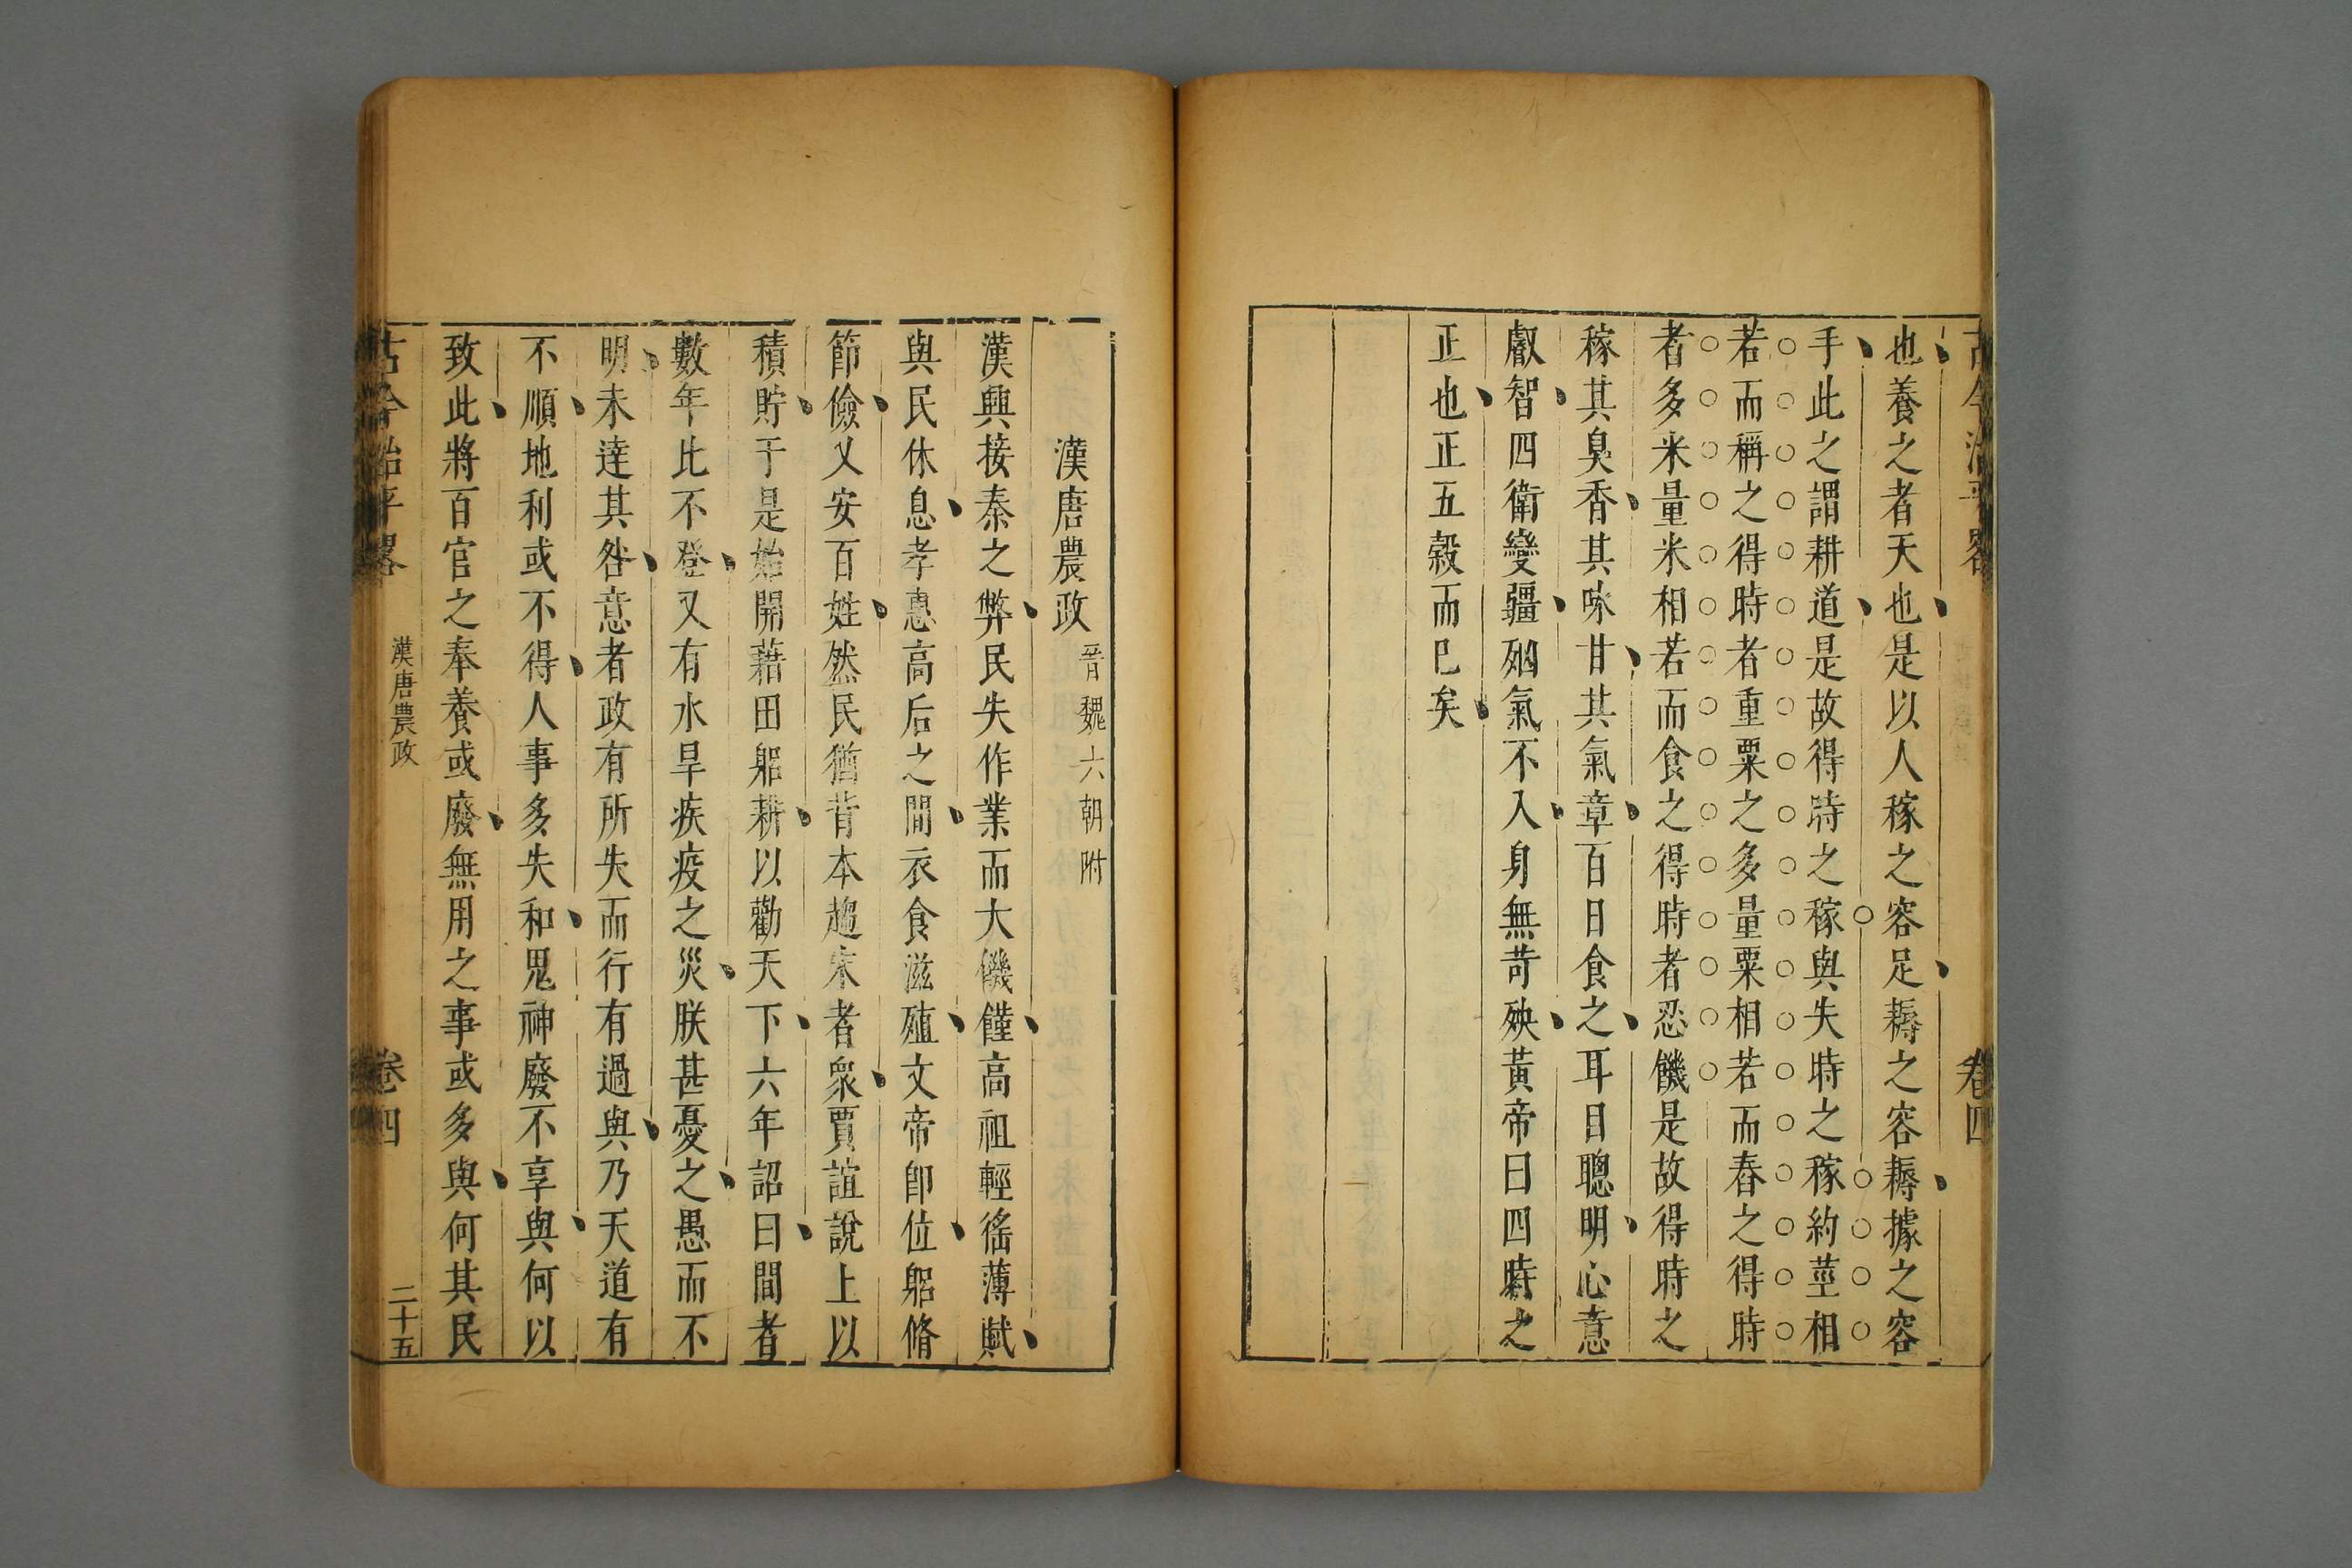 也養之者天也是以人稼之容足耨之容耨據之容
手此之謂耕道是故得時之稼與失時之稼約莖相
若而稱之得時者重粟之多量粟相若而舂之得時
者多米量米相若而食之得時者忍饑是故得時之
稼其臭香其味甘其氣章百日食之耳目聰明心意
叡智四衛變疆㐫氣不入身無苛殃黃帝曰四時之
正也正五穀而已矣
古今治平畧
卷四
漢唐農政 晉魏六朝附
漢興接秦之弊民失作業而大饑饉高祖輕徭薄賦
與民休息孝惠高后之間衣食滋殖文帝即位躳脩
節儉又安百姓然民猶背本趨末者衆賈誼說上以
積貯于是始開藉田躳耕以勸天下六年詔曰間者
數年比不登又有水旱疾疫之災朕甚憂之愚而不
明未達其咎意者政有所失而行有過與乃天道有
不順地利或不得人事多失和鬼神廢不享與何以
致此將百官之奉養或廢無用之事或多與何其民
古今治平畧
漢唐農政
卷四
二十五